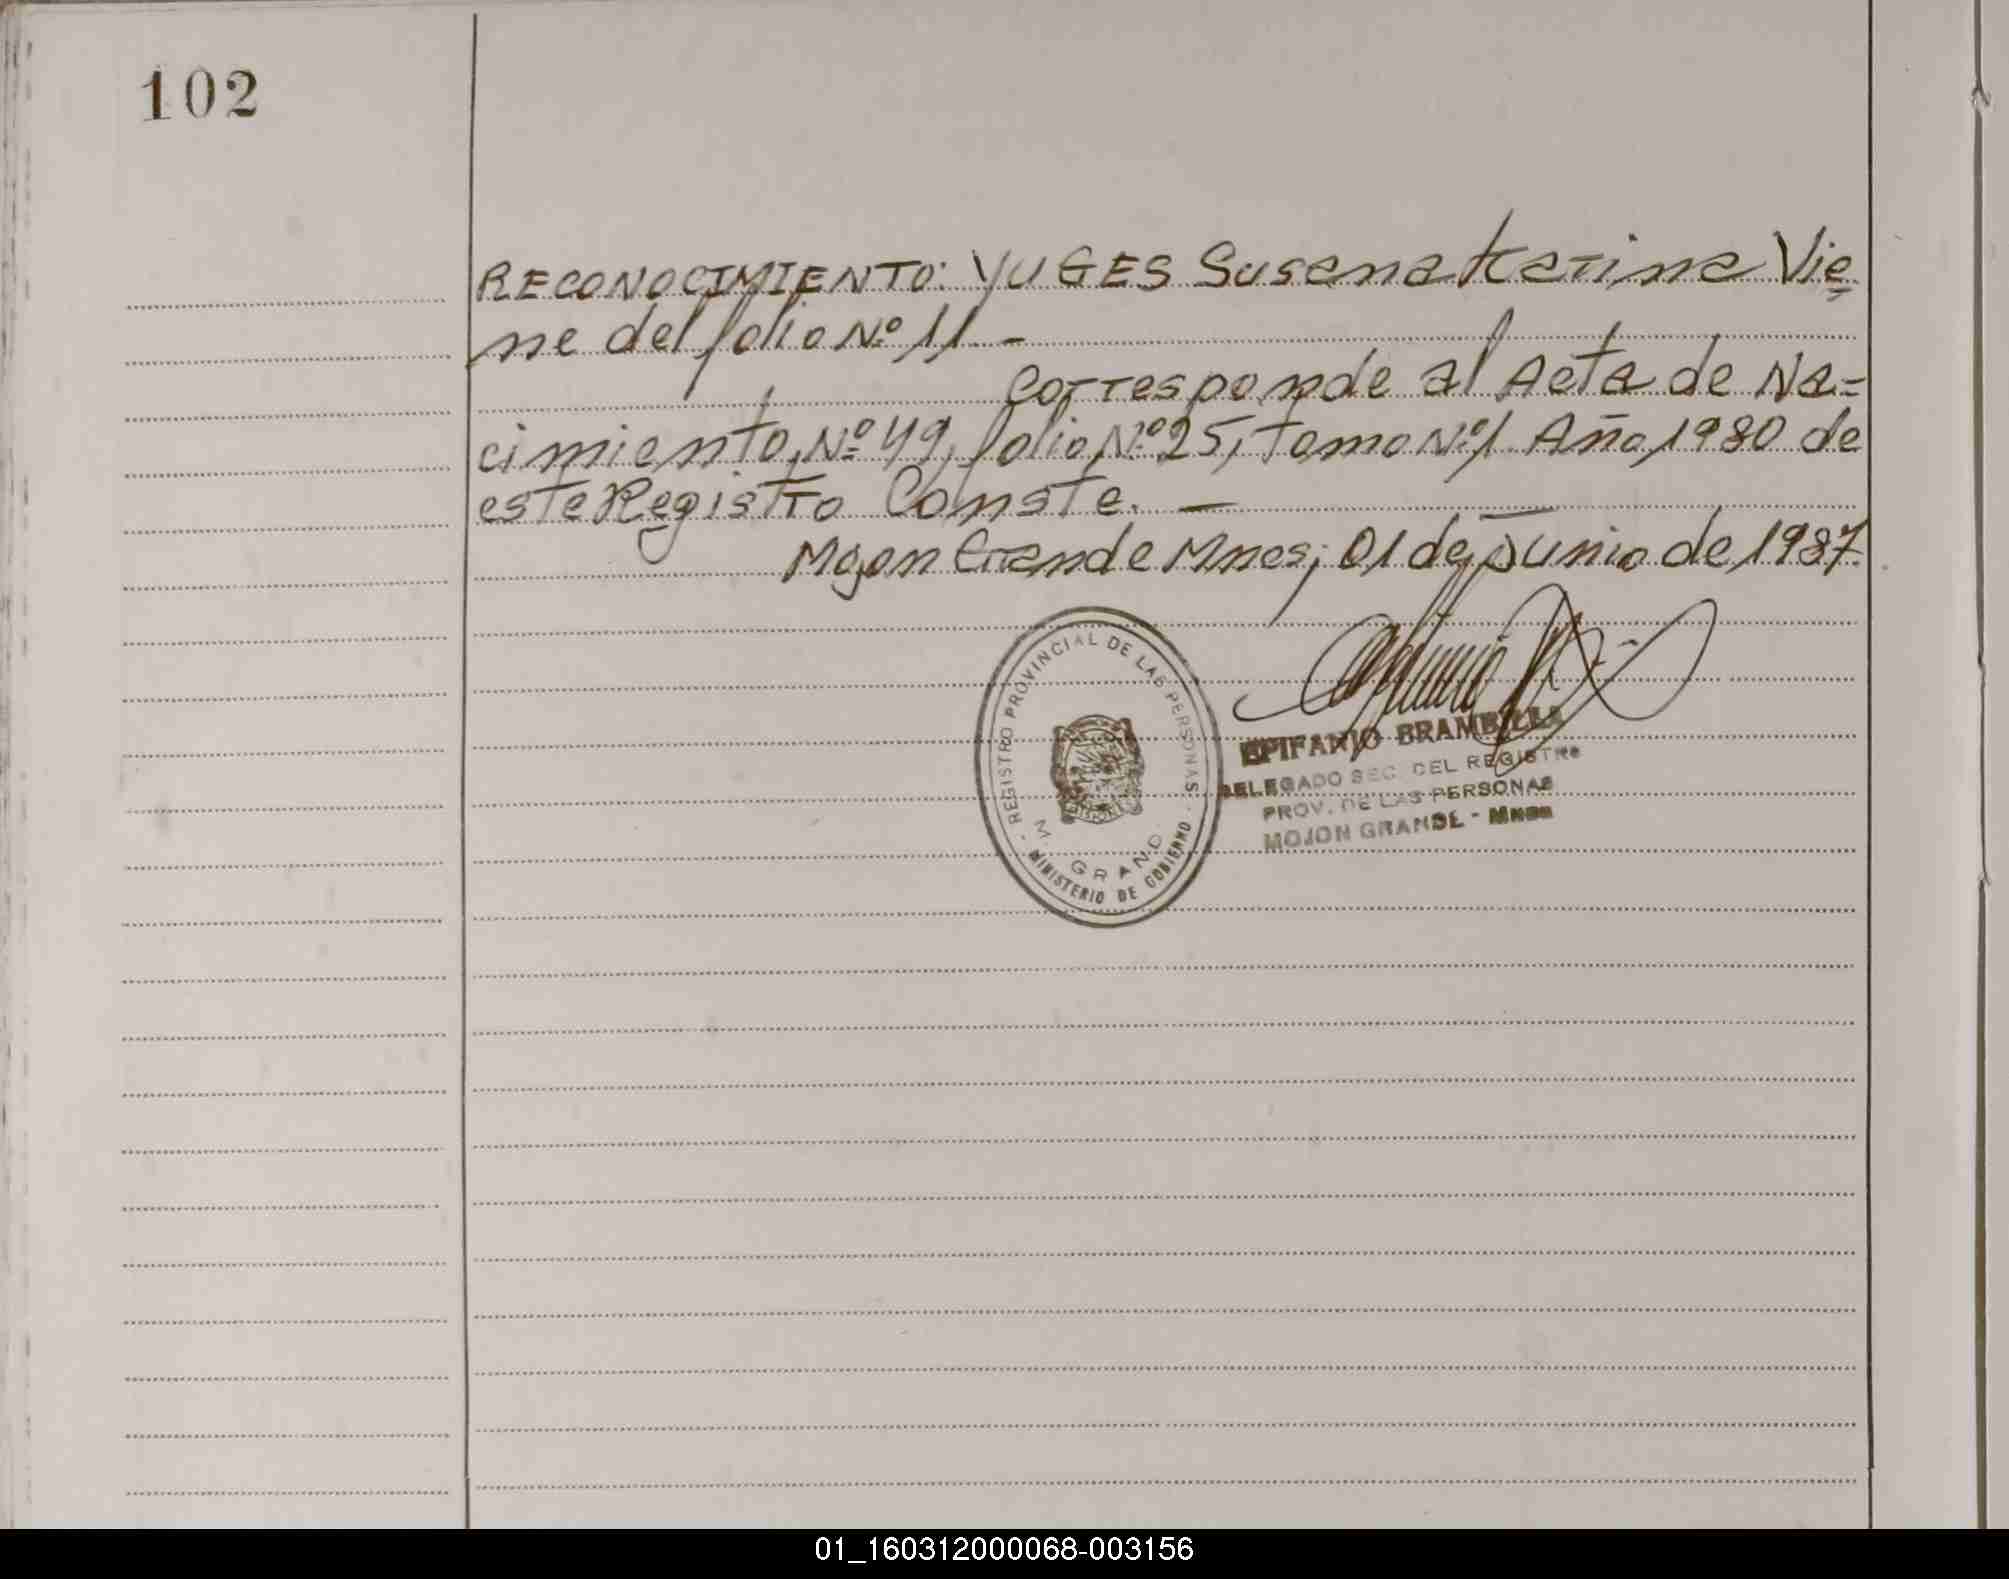 102
RECONOCIMIENTO: YUGES Susana Karina Vie
ne del folio Nº 11. -
Corresponde al Acta de Na=
cimiento, Nº 49, folio Nº 25, tomo Nº 1. Año 1980 de
este Registro Conste. —
Mojon Grande Mnes; 01 de Junio de 1987.
REGISTRO PROVINCIAL DE LAS PERSONAS
MISIONES
M. GRAND
MINISTERIO DE GOBIERNO
EPIFANIO BRAMBILLA
DELEGADO SEC. DEL REGISTRO
PROV. DE LAS PERSONAS
MOJON GRANDE - Mnes
01_160312000068-003156